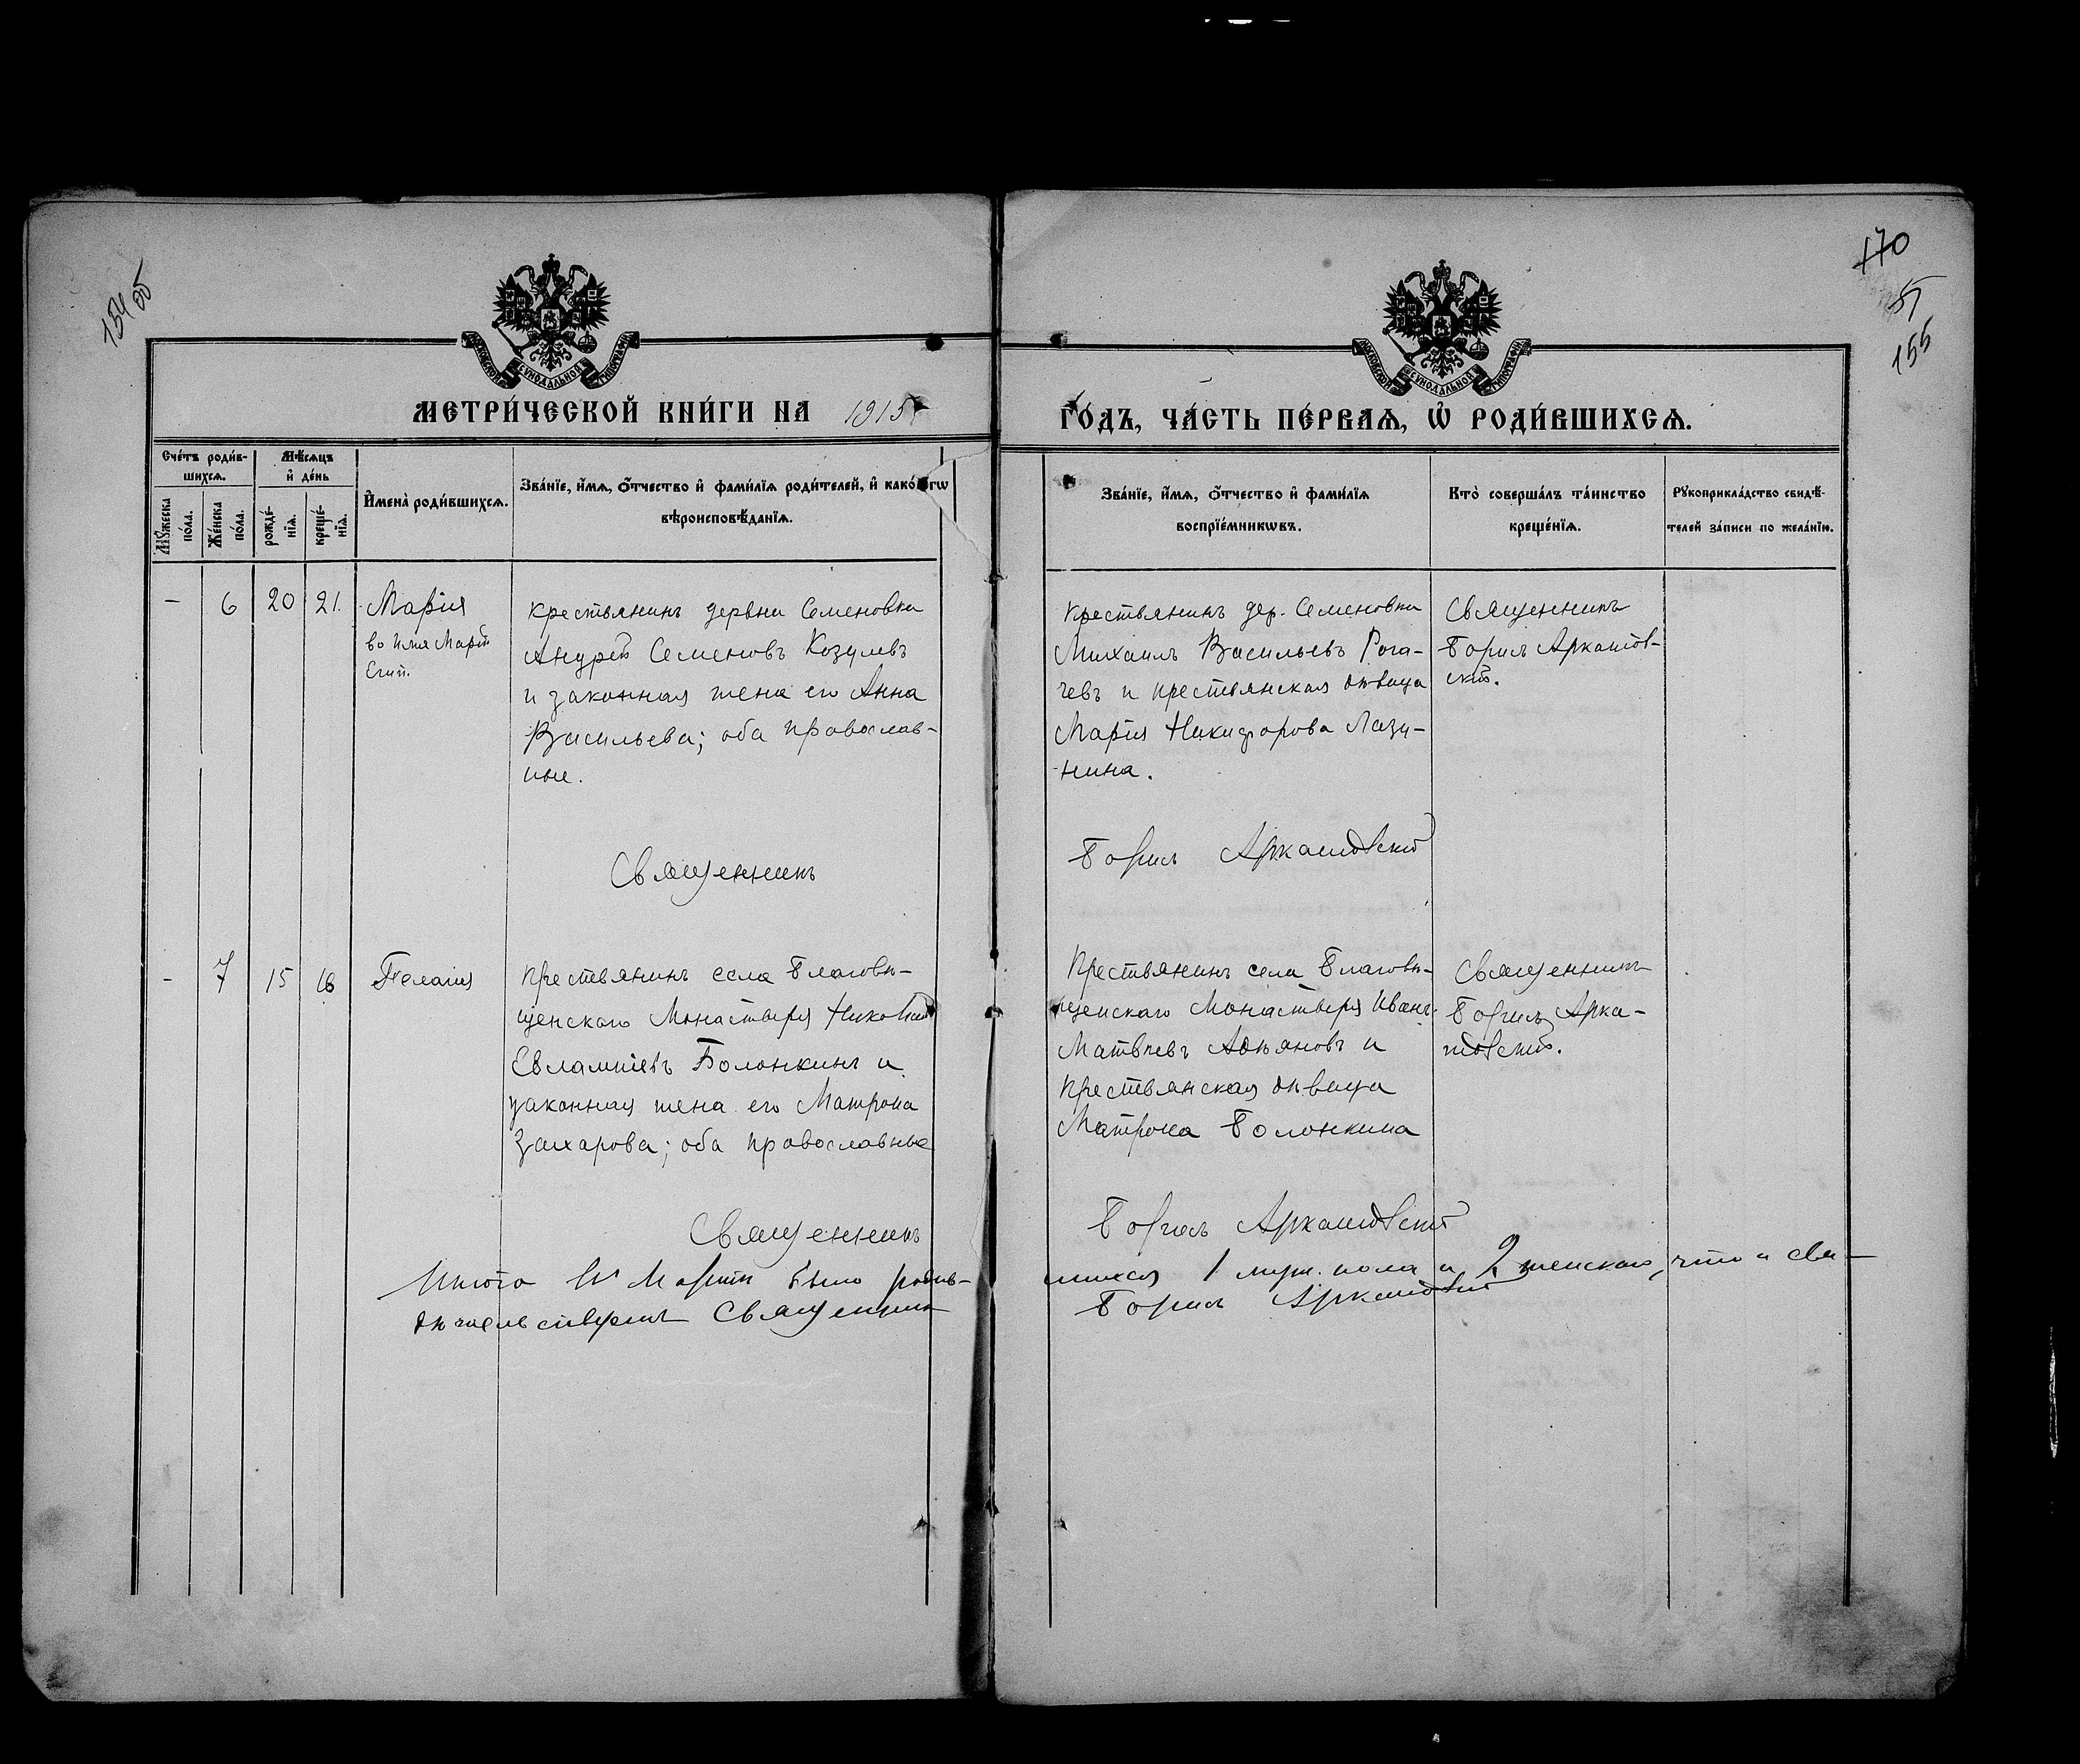 154 об
170
155
МОСКОВСКОЙ СѴНОДАЛЬНОЙ ТИПОГРАФІИ
МОСКОВСКОЙ СѴНОДАЛЬНОЙ ТИПОГРАФІИ
МЕТРИ́ЧЕСКОЙ КНИ́ГИ НА 1915
ГО́ДЪ, ЧА́СТЬ ПЕ́РВАѦ, Ѡ҆ РОДИ́ВШИХСѦ.
Сче́тъ роди́в-
шихсѧ.
Мꙋ́жеска по́ла.
Же́нска по́ла.
Мѣ́сѧцъ
и҆ де́нь
рожде́-
нїѧ.
креще́-
нїѧ.
И҆мена̀ роди́вшихсѧ.
Зва́нїе, и҆́мѧ, ѻ҆́тчество и҆ фами́лїѧ роди́телей, и҆ како́гѡ
вѣроисповѣ́данїѧ.
Зва́нїе, и҆́мѧ, ѻ҆́тчество и҆ фами́лїѧ
воспрїе́мникѡвъ.
Кто̀ соверша́лъ та́инство
креще́нїѧ.
Рꙋкоприкла́дство свидѣ́-
телей за́писи по жела́нїю.
– 6 20 21. Марія
во имя Маріи
Егип.
Крестьянинъ деревни Семеновки
Андрей Семеновъ Козулевъ
и законная жена его Анна
Васильева; оба православ-
ные.
Крестьянинъ дер. Семеновки
Михаилъ Васильевъ Рога-
чевъ и крестьянская дѣвица
Марія Никифорова Лазу-
нина.
Священникъ
Борисъ Аркатов-
скій.
Священникъ
Борисъ Аркатовскій
- 7 15 16 Пелагія
Крестьянинъ села Благовѣ-
щенскаго Монастыря Николай
Евлампіевъ Болонкинъ и
законная жена его Матрона
Захарова; оба православные
Крестьянинъ села Благовѣ-
щенскаго Монастыря Иванъ
Матвѣевъ и
крестьянская дѣвица
Матрона Болонкина
Священникъ
Борисъ Арка-
товскій.
Священникъ
Борисъ Аркатовскій
Итого въ Мартѣ было родив-
шихся 1 муж. пола и 2 женскаго, что и сви-
дѣтельствуетъ Священникъ
Борисъ Аркатовскій